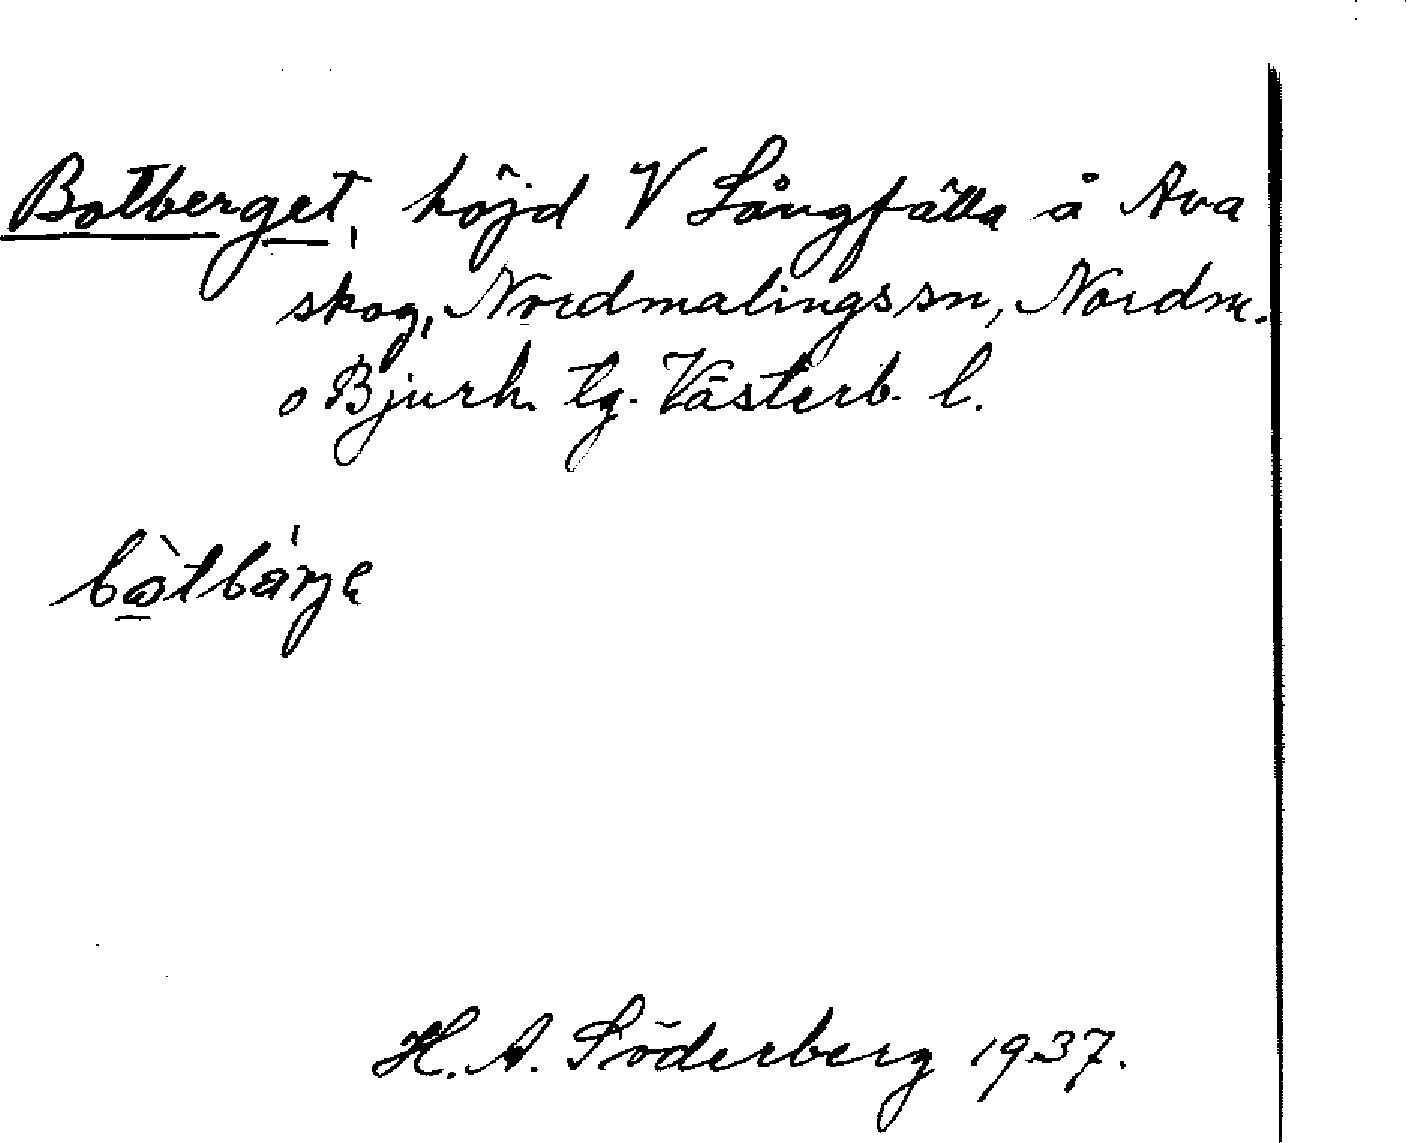 Botberget, höjd V Långfälla å Ava
skog, Nordmalings sn, Nordm.
o Bjurh. tg. Västerb. l.
H. A. Söderberg 1937.